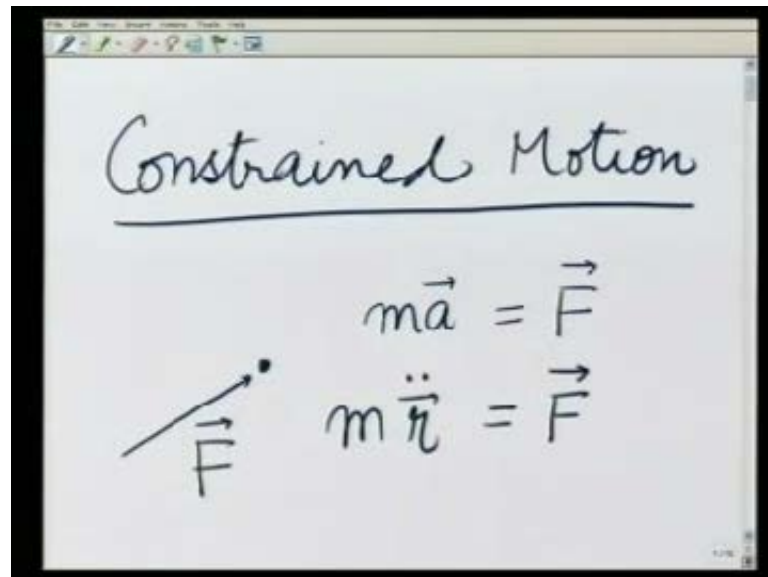 File Edit View Insert Actions Tools Help
Constrained Motion
m\vec{a} = \vec{F}
m\ddot{\vec{r}} = \vec{F}
\vec{F}